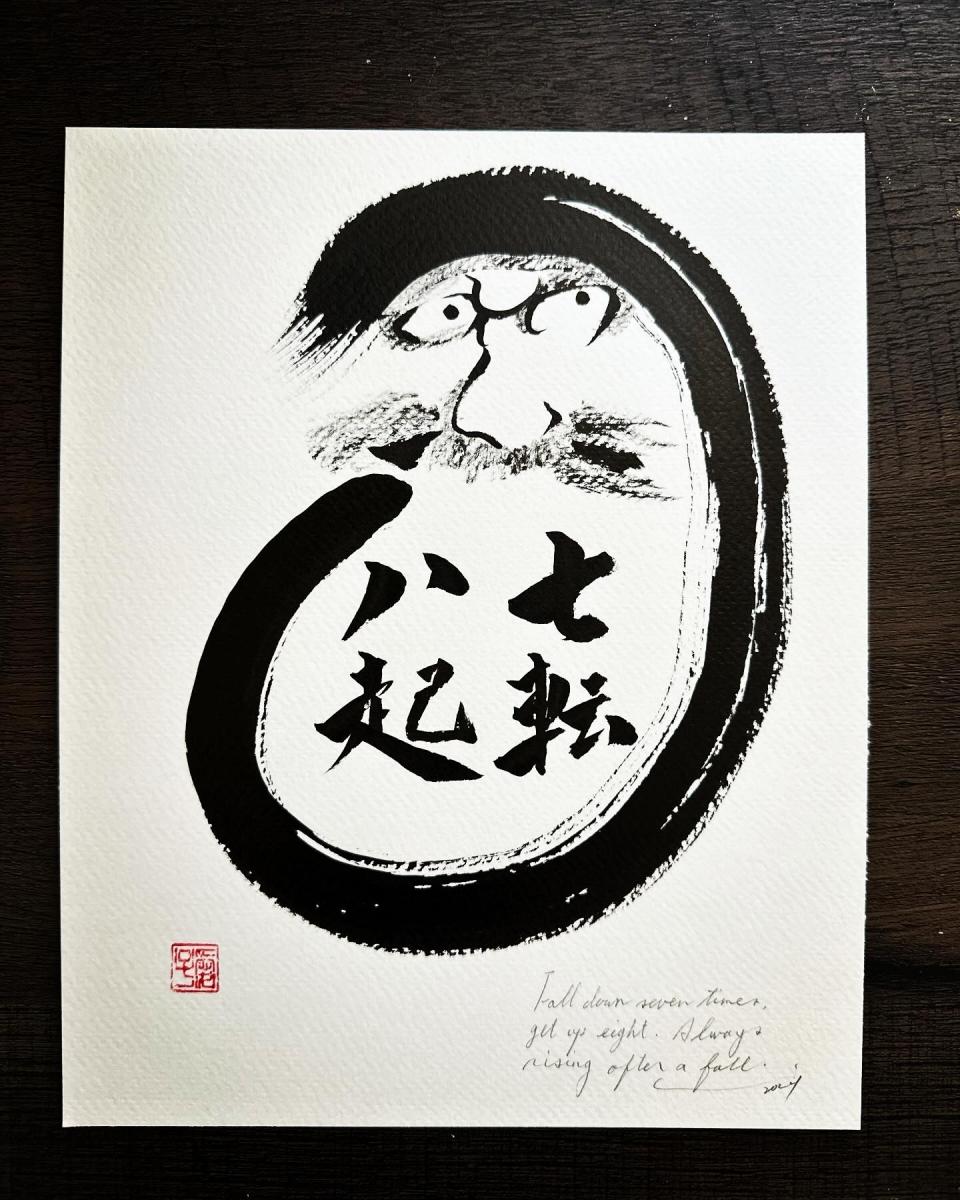 七転
八起
Fall down seven times,
get up eight. Always
rising after a fall.